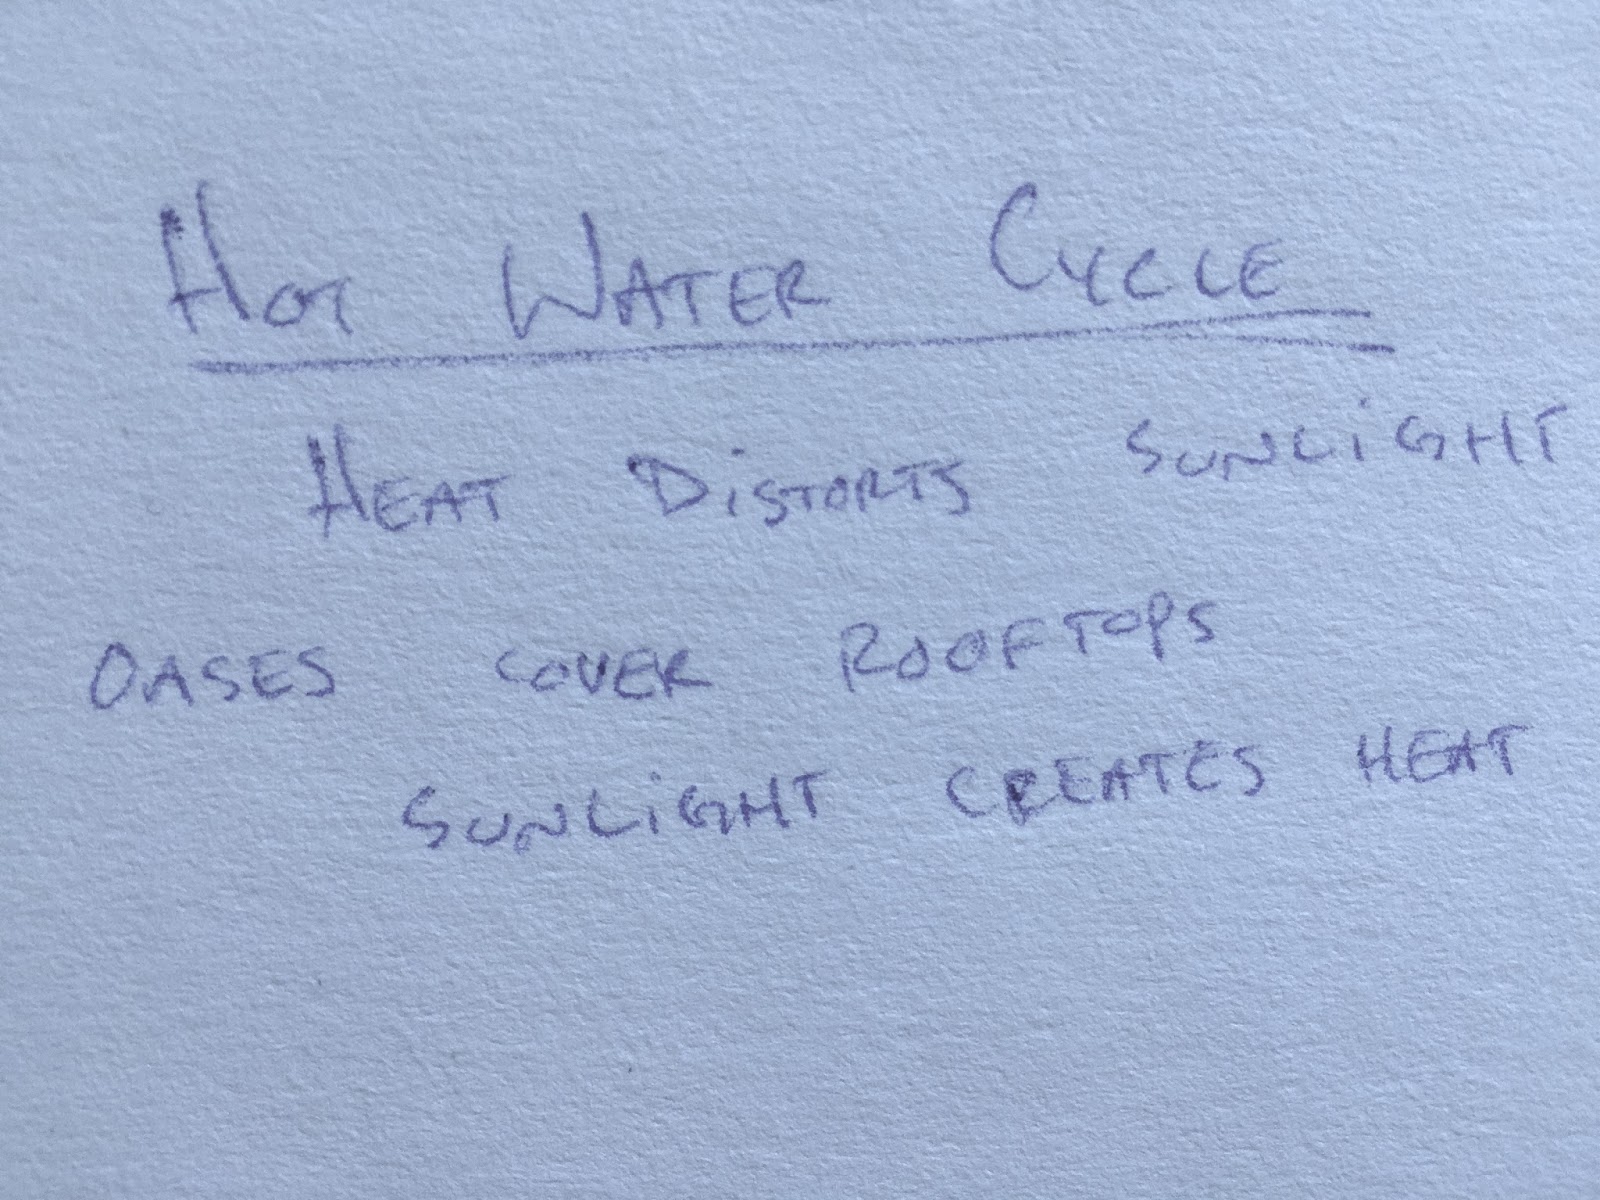 Hot Water Cycle
Heat Distorts sunlight
Oases cover Rooftops
sunlight creates Heat